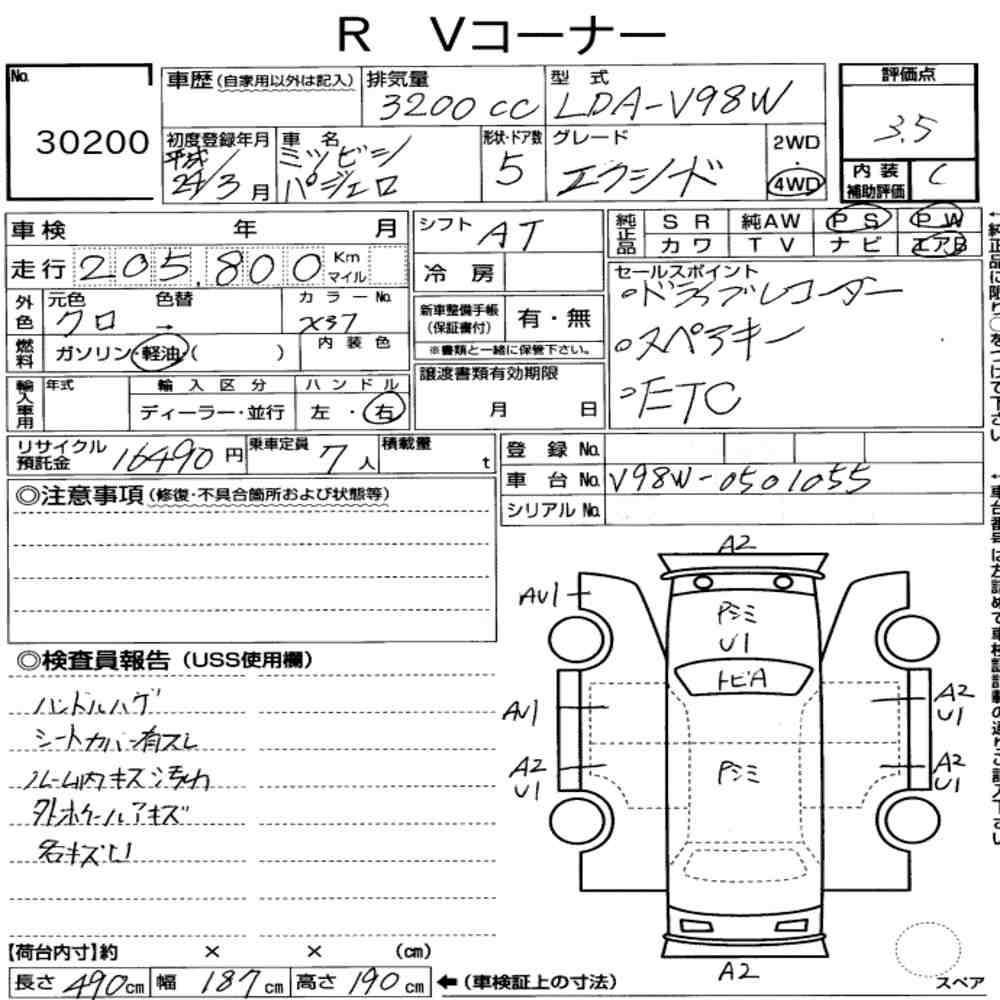 R Vコーナー
No.
30200
車歴 (自家用以外は記入)
排気量
3200 cc
型 式
LDA-V98W
評価点
3.5
内装
補助評価
C
初度登録年月
平成
24/3月
車 名
ミツビシ
パジェロ
形状・ドア数
5
グレード
エクシード
2WD
・
4WD
車検 年 月
走行 205,800 Km
マイル
シフト AT
冷房
純正品
SR 純AW PS PW
カワ TV ナビ エアB
セールスポイント
○ドライブレコーダー
○スペアキー
○ETC
外色
元色 色替
クロ →
カラーNo.
X37
燃料
ガソリン・軽油・( )
内装色
新車整備手帳
(保証書付)
有・無
※書類と一緒に保管下さい。
輸入車用
年式
輸入区分
ディーラー・並行
ハンドル
左・右
譲渡書類有効期限
月 日
リサイクル
預託金
16490円
乗車定員
7人
積載量
t
登録No.
車台No. V98W-0501055
シリアルNo.
◎注意事項 (修復・不具合箇所および状態等)
◎検査員報告 (USS使用欄)
ハンドルハゲ
シートカバー有スレ
ルーム内キズ汚れ
外ホイールアキズ
各キズU
A2
AU1
Pシミ
U1
トビA
AU1
A2
U1
A2
U1
Pシミ
A2
U1
A2
スペア
【荷台内寸】約 × × (cm)
長さ 490cm 幅 187cm 高さ 190cm
←(車検証上の寸法)